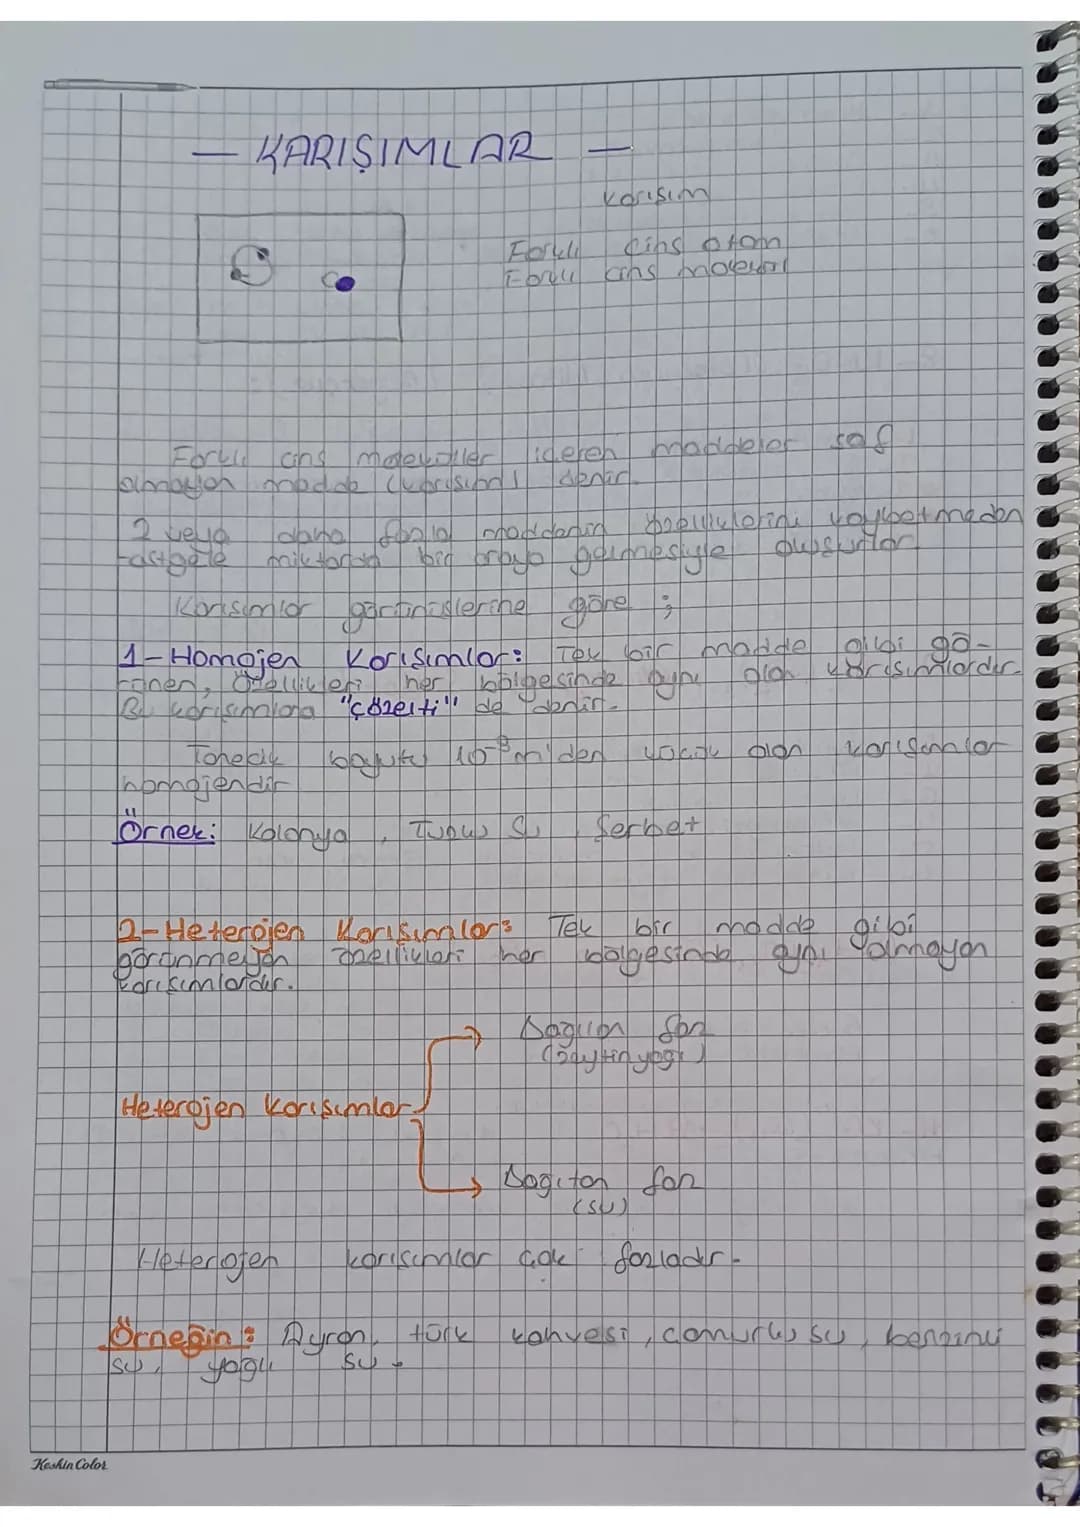 - KARIŞIMLAR -
Karışım
Farklı Cins atom
Farklı cins molekül
Farklı cins moleküller içeren maddeler saf
olmayan madde (karışım) denir.
2 veya daha fazla maddenin özelliklerini kaybetmeden
rastgele miktarda bir araya gelmesiyle oluşurlar
Karışımlar görünüşlerine göre ;
1-Homojen Karışımlar: Tek bir madde gibi gö-
rünen, özellikleri her bölgesinde aynı olan karışımlardır.
Bu karışımlara "çözelti" de denir.
Tanecik boyutu 10⁻⁹ m'den küçük olan karışımlar
homojendir
Örnek: Kolonya, Tuzlu Su, Şerbet
2-Heterojen Karışımlar: Tek bir madde gibi
görünmeyen özellikleri her bölgesinde aynı olmayan
karışımlardır.
Dağılan faz
(Zeytinyağı)
Heterojen Karışımlar
Dağıtan faz
(su)
Heterojen karışımlar çok fazladır.
Örneğin: Ayran, türk kahvesi, çamurlu su, benzinli
su, yağlı su.
Keskin Color